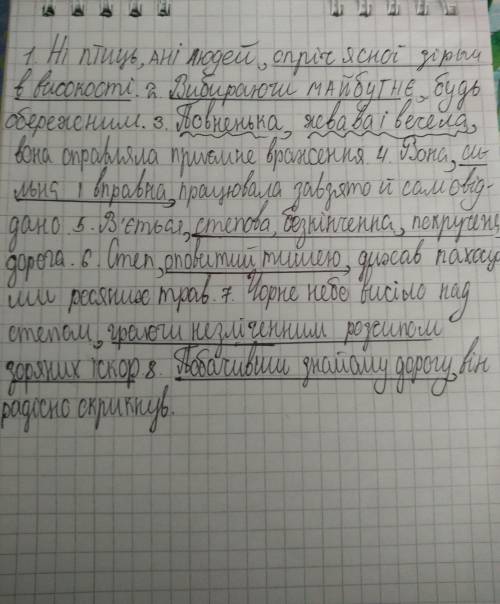 1. Ні птиць, ані людей, опріч ясної зірки
в високості. 2. Вибираючи майбутнє, будь
обережним. 3. Повненька, жвава і весела,
вона справляла приємне враження. 4. Вона, си-
льна і вправна, працювала завзято й самовід-
дано 5. В'ється, степова, безкінченна, покручена
дорога. 6. Степ, оповитий тишею, дихав пахоща-
ми росяних трав. 7. Чорне небо висіло над
степом, граючи незліченним розсипом
зоряних іскор 8. Побачивши знайому дорогу, він
радосно скрикнув.